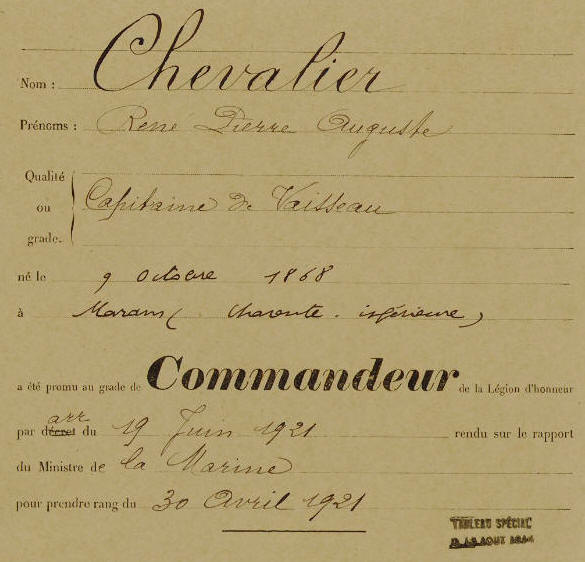 Nom : Chevalier
Prénoms : René Pierre Auguste
Qualité
ou Capitaine de Vaisseau
grade.
né le 9 Octobre 1868
à Marans (Charente inférieure)
a été promu au grade de Commandeur de la Légion d'honneur
arr
par décret du 19 Juin 1921 rendu sur le rapport
du Ministre de la Marine
pour prendre rang du 30 Avril 1921
TABLEAU SPÉCIAL
AOUT